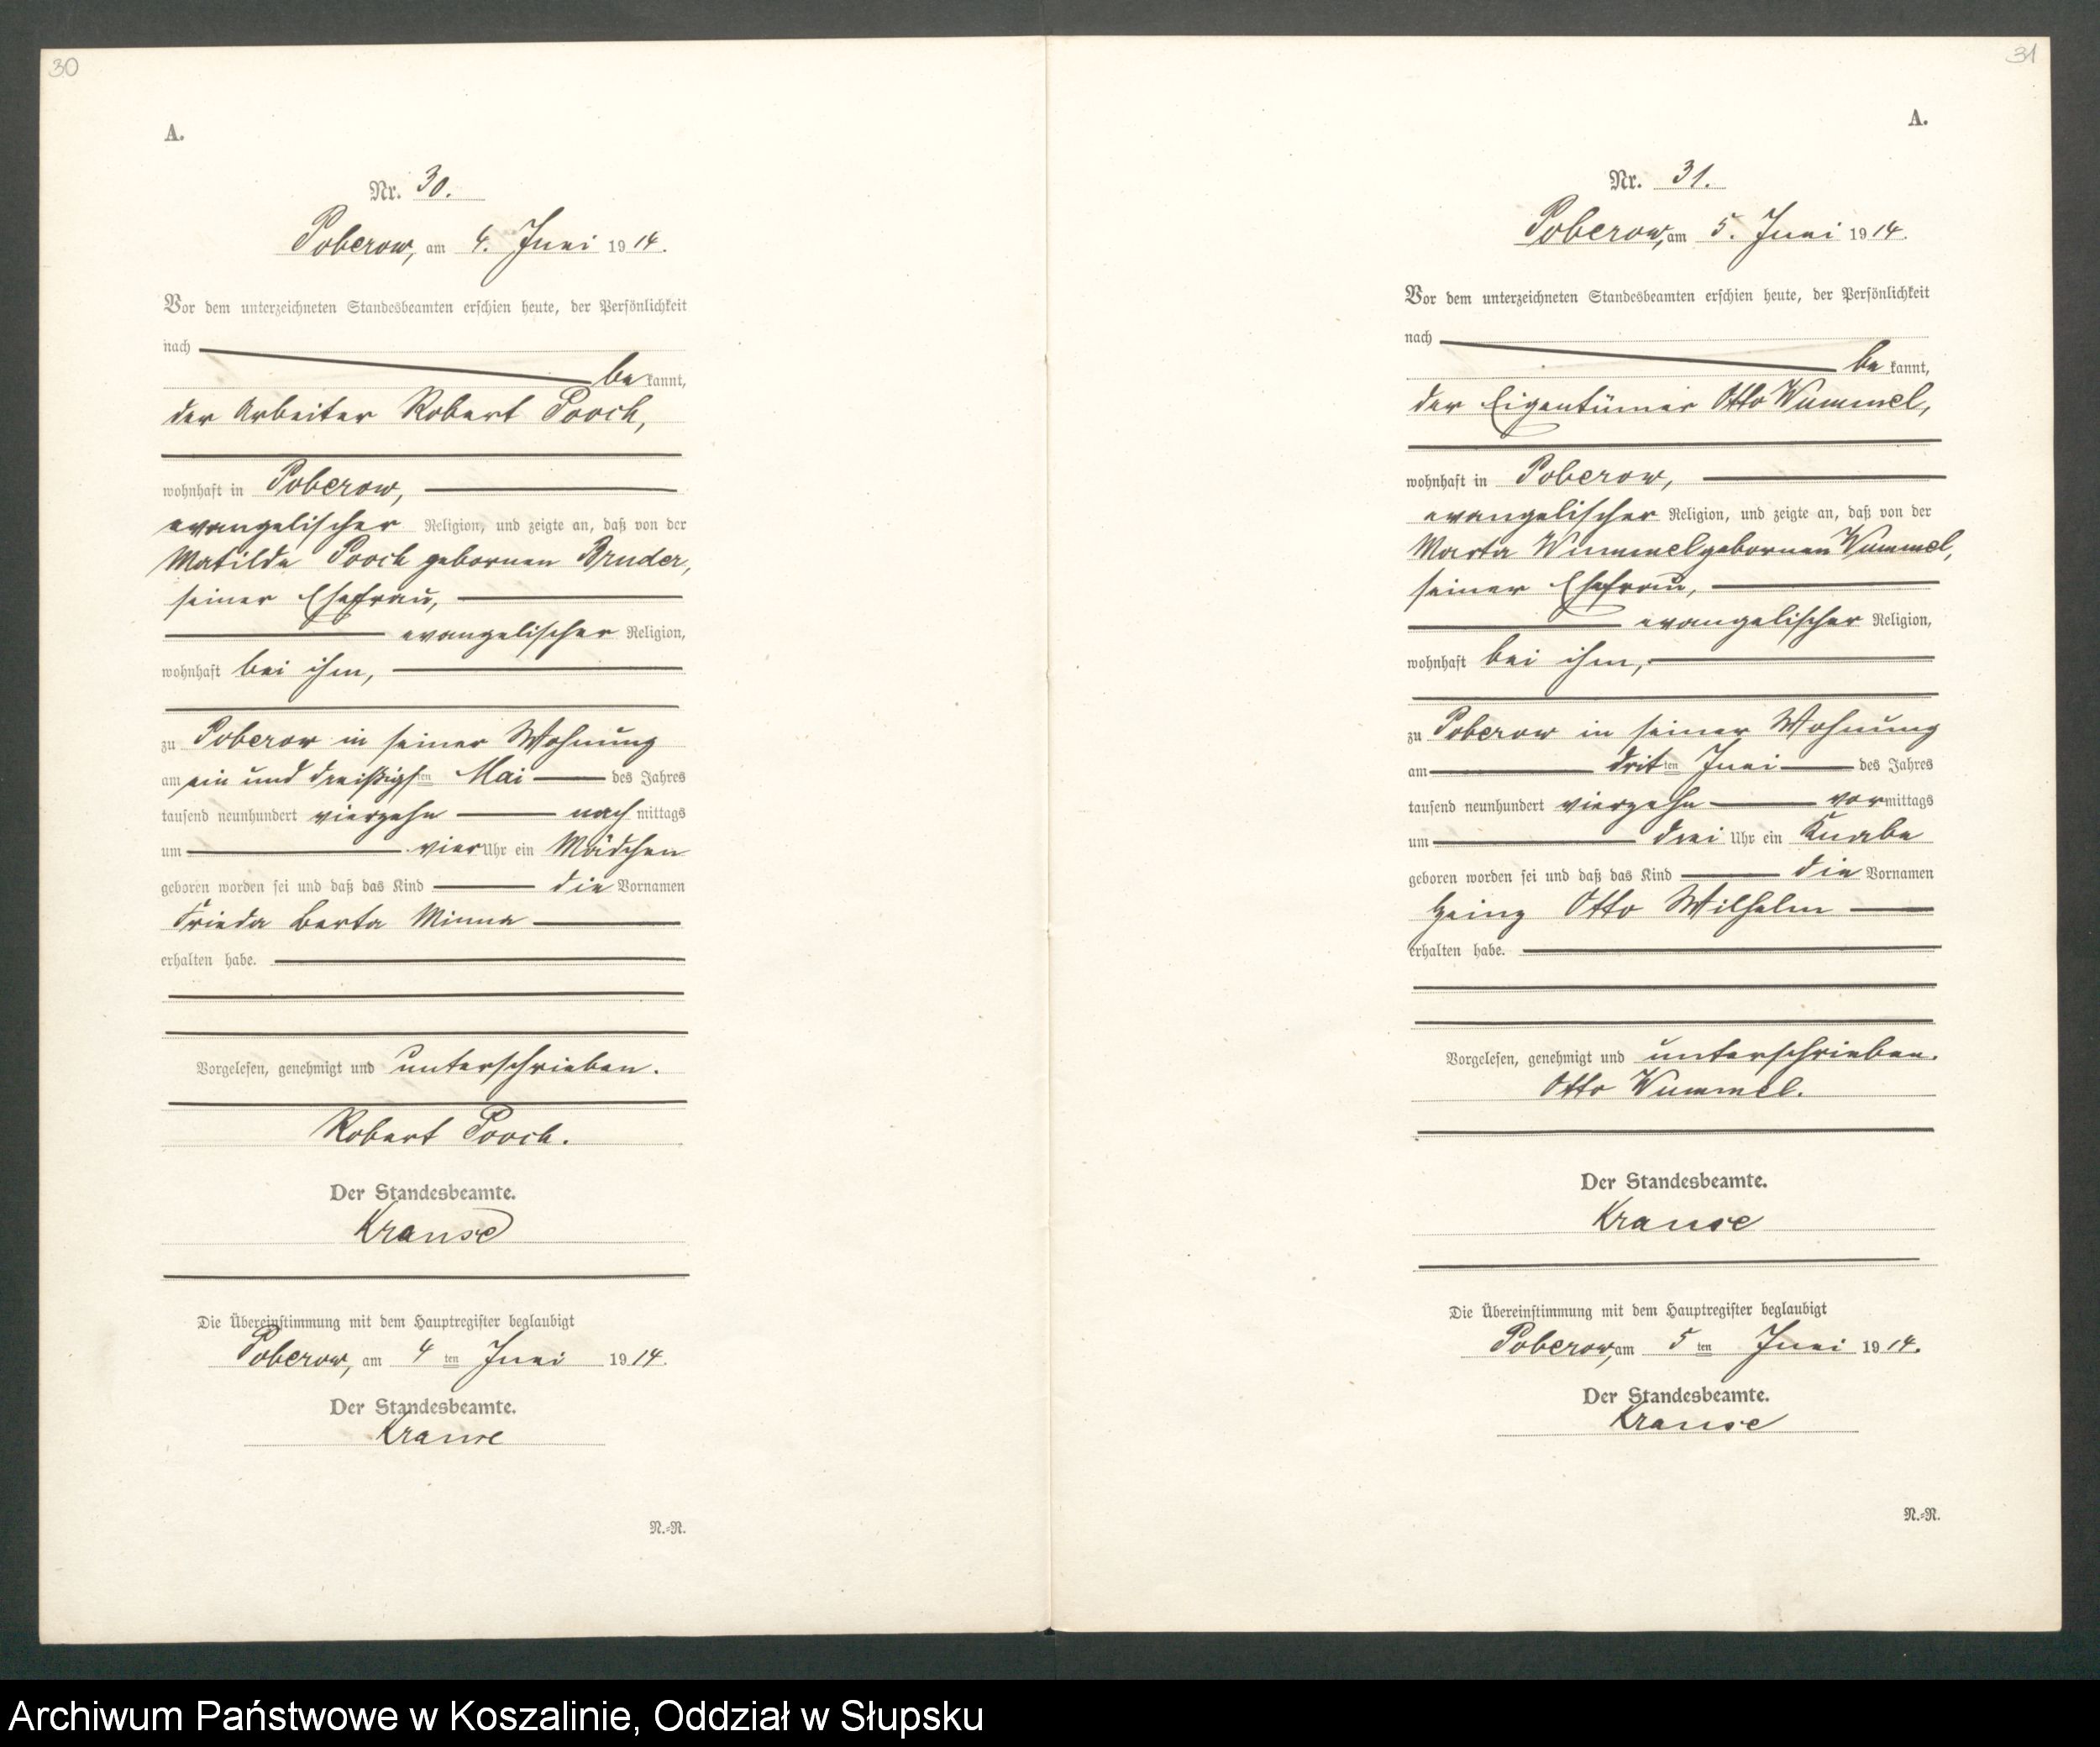 30
A.
Nr. 30.
Poberow, am 4. Juni 1914.
Vor dem unterzeichneten Standesbeamten erschien heute, der Persönlichkeit
nach
be kannt,
der Arbeiter Robert Pooch,
wohnhaft in Poberow,
evangelischer Religion, und zeigte an, daß von der
Matilde Pooch gebornen Bruder,
seiner Ehefrau,
evangelischer Religion,
wohnhaft bei ihm,
zu Poberow in seiner Wohnung
am ein und dreißigsten Mai des Jahres
tausend neunhundert vierzehn nach mittags
um vier Uhr ein Mädchen
geboren worden sei und daß das Kind die Vornamen
Frieda Berta Minna
erhalten habe.
Vorgelesen, genehmigt und unterschrieben.
Robert Pooch.
Der Standesbeamte.
Krause
Die Übereinstimmung mit dem Hauptregister beglaubigt
Poberow, am 4 ten Juni 1914.
Der Standesbeamte.
Krause
N.-R.
31
A.
Nr. 31.
Poberow, am 5. Juni 1914.
Vor dem unterzeichneten Standesbeamten erschien heute, der Persönlichkeit
nach
be kannt,
der Eigentümer Otto Wummel,
wohnhaft in Poberow,
evangelischer Religion, und zeigte an, daß von der
Marta Wummel gebornen Wummel,
seiner Ehefrau,
evangelischer Religion,
wohnhaft bei ihm,
zu Poberow in seiner Wohnung
am dritten Juni des Jahres
tausend neunhundert vierzehn vormittags
um drei Uhr ein Knabe
geboren worden sei und daß das Kind die Vornamen
Heinz Otto Wilhelm
erhalten habe.
Vorgelesen, genehmigt und unterschrieben.
Otto Wummel.
Der Standesbeamte.
Krause
Die Übereinstimmung mit dem Hauptregister beglaubigt
Poberow, am 5 ten Juni 1914.
Der Standesbeamte.
Krause
N.-R.
Archiwum Państwowe w Koszalinie, Oddział w Słupsku